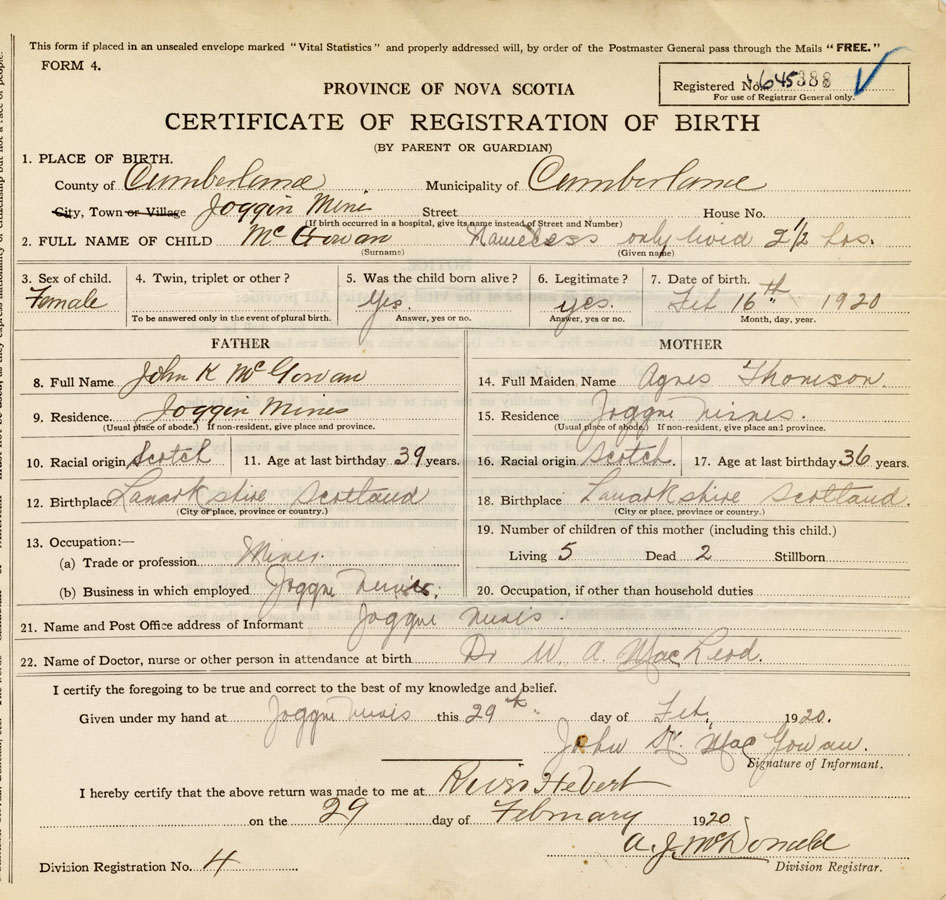 This form if placed in an unsealed envelope marked "Vital Statistics" and properly addressed will, by order of the Postmaster General pass through the Mails "FREE."
FORM 4.
Registered No. 645388
For use of Registrar General only.
PROVINCE OF NOVA SCOTIA
CERTIFICATE OF REGISTRATION OF BIRTH
(BY PARENT OR GUARDIAN)
1. PLACE OF BIRTH.
County of Cumberland Municipality of Cumberland
City, Town or Village Joggin Mines Street House No.
(If birth occurred in a hospital, give its name instead of Street and Number)
2. FULL NAME OF CHILD McGowan Nameless only lived 2 1/2 hrs.
(Surname) (Given name)
3. Sex of child. 4. Twin, triplet or other? 5. Was the child born alive? 6. Legitimate? 7. Date of birth.
Female Yes. yes. Feb 16th 1920
To be answered only in the event of plural birth. Answer, yes or no. Answer, yes or no. Month, day, year.
FATHER
8. Full Name John K McGowan
9. Residence. Joggin Mines
(Usual place of abode.) If non-resident, give place and province.
10. Racial origin Scotch 11. Age at last birthday 39 years.
12. Birthplace Lanarkshire Scotland
(City or place, province or country.)
13. Occupation:—
(a) Trade or profession Miner.
(b) Business in which employed Joggin Mines.
MOTHER
14. Full Maiden Name Agnes Thomson.
15. Residence Joggin Mines.
(Usual place of abode.) If non-resident, give place and province.
16. Racial origin Scotch. 17. Age at last birthday 36 years.
18. Birthplace Lanarkshire Scotland.
(City or place, province or country.)
19. Number of children of this mother (including this child.)
Living 5 Dead 2 Stillborn
20. Occupation, if other than household duties
21. Name and Post Office address of Informant Joggin Mines.
22. Name of Doctor, nurse or other person in attendance at birth Dr W. A. MacLeod.
I certify the foregoing to be true and correct to the best of my knowledge and belief.
Given under my hand at Joggin Mines this 29th day of Feb, 1920.
John K. MacGowan.
Signature of Informant.
I hereby certify that the above return was made to me at River Hebert
on the 29 day of February 1920
A. J. McDonald
Division Registration No. 4 Division Registrar.